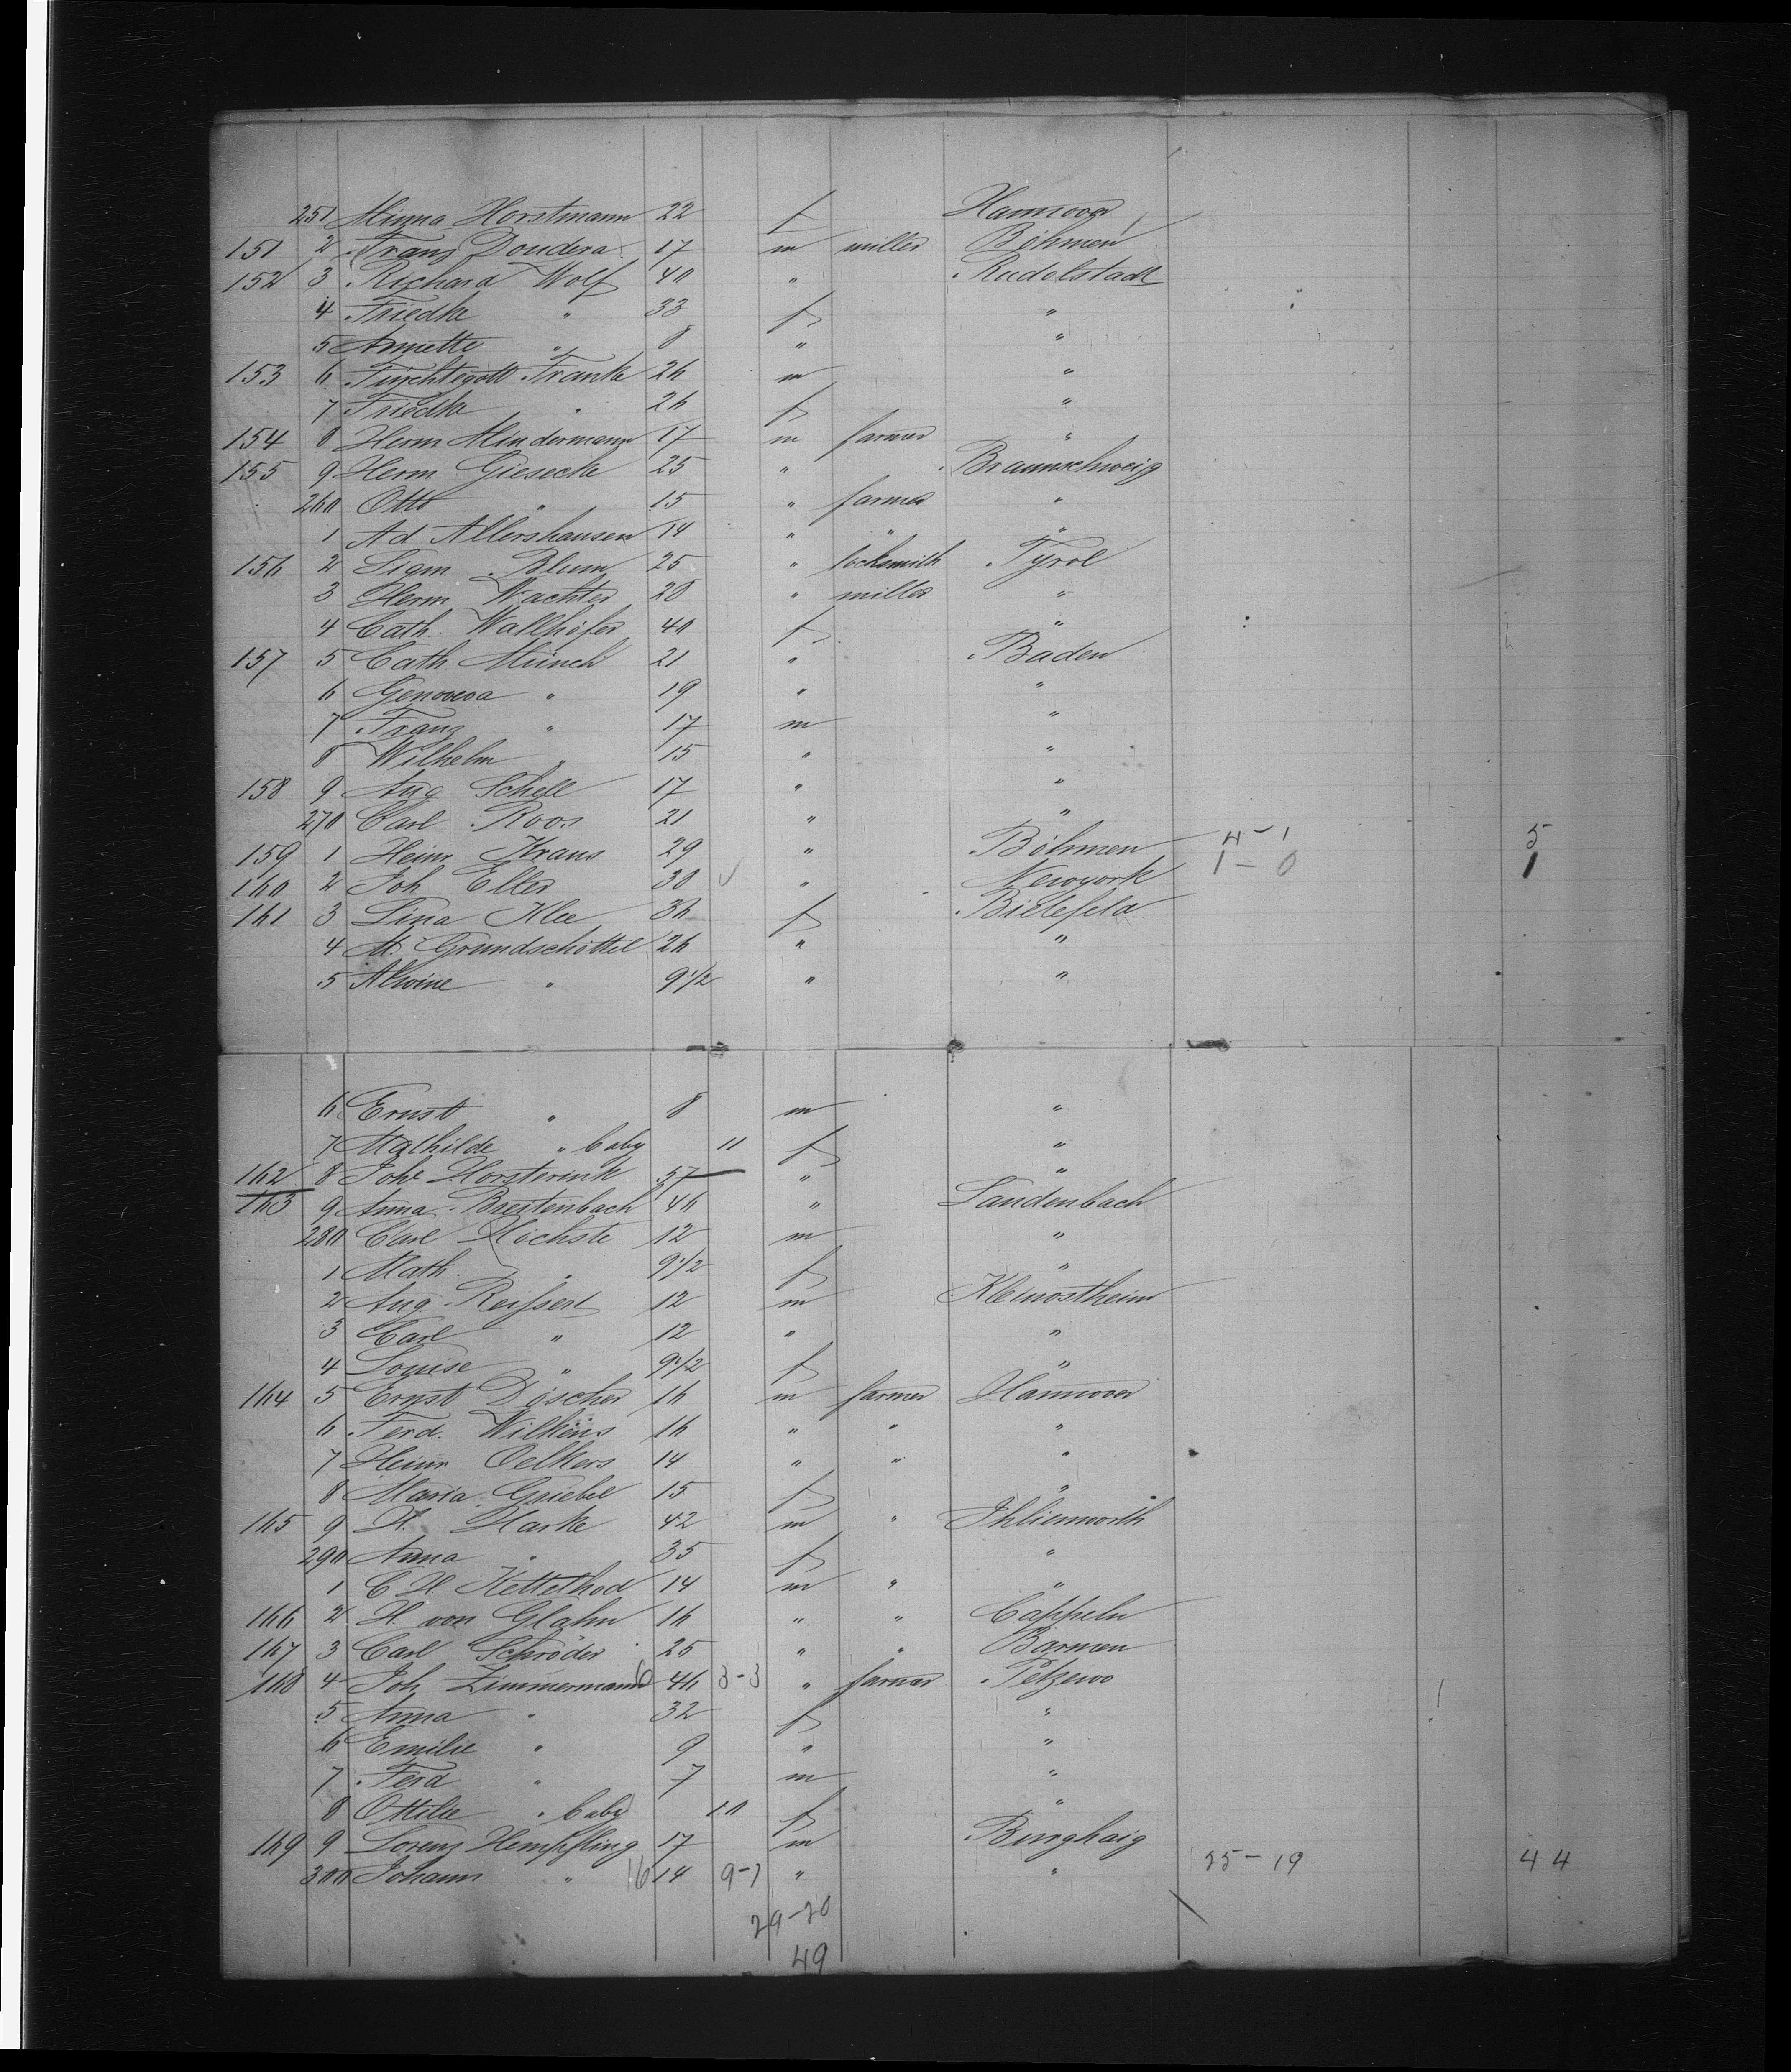 251 Minna Horstmann 22 f Hannover
151 2 Franz Doudera 17 m miller Böhmen
152 3 Richard Wolf 40 " Rudolstadt
4 Friedke " 33 f "
5 Annette " 8 " "
153 6 Furchtegott Franke 26 m "
7 Friedke " 26 f "
154 8 Herm Mindermann 17 m farmer "
155 9 Herm Giesecke 25 " Braunschweig
260 Otto " 15 " farmer "
1 Ad Allershausen 14 " " "
156 2 Sigm Blum 25 " locksmith Tyrol
3 Herm Wachter 20 " miller "
4 Cath. Wallhöfer 40 f "
157 5 Cath. Münch 21 " Baden
6 Genoveva " 19 " "
7 Franz " 17 m "
8 Wilhelm " 15 " "
158 9 Aug Schell 17 " "
270 Carl Roos 21 " "
159 1 Heinr Kraus 29 " Böhmen 4-1 5
160 2 Joh Eller 30 " Newyork 1-0 1
161 3 Lina Klee 36 f Bielefeld
4 M. Grundschöttel 26 " "
5 Alwine " 9 1/2 " "
6 Ernst " 8 m "
7 Mathilde " baby 11 f "
162 8 Joh Horsterink 57 " "
163 9 Anna Breitenbach 46 " Laudenbach
280 Carl Höchste 12 m "
1 Math. " 9 1/2 f "
2 Aug. Reissert 12 m Kleinostheim
3 Carl " 12 " "
4 Louise " 9 1/2 f "
164 5 Ernst Döscher 16 m farmer Hannover
6 Ferd. Wilkens 16 " " "
7 Heinr Oelkers 14 " " "
8 Maria Griebel 15 f "
165 9 H. Harke 42 m " Ihlienworth
290 Anna " 35 f "
1 C H Kettelhod 14 m " "
166 2 H von Glahn 16 " " Cappeln
167 3 Carl Schröder 25 " " Barmen
168 4 Joh Zimmermann 6 46 3-3 " farmer Petzewo
5 Anna " 32 f "
6 Emilie " 9 " "
7 Ferd " 7 m "
8 Ottilie " baby 10 f "
169 9 Lorenz Hempfling 17 m Burghaig
300 Johann " 16 14 9-7 " " 25-19 44
29-20
49